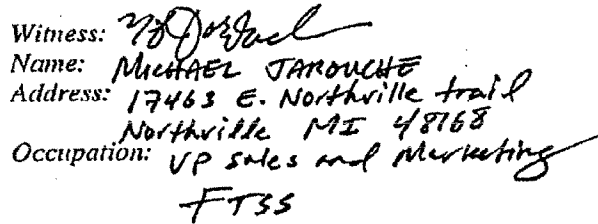 Witness:
Name: MICHAEL JAROUCHE
Address: 17463 E. Northville trail
Northville MI 48168
Occupation: VP sales and Marketing
FTSS